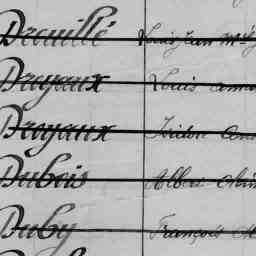 Drouillé Louis Jean M
Droyaux Louis
Droyaux Isidor
Dubois Albert
Duby François